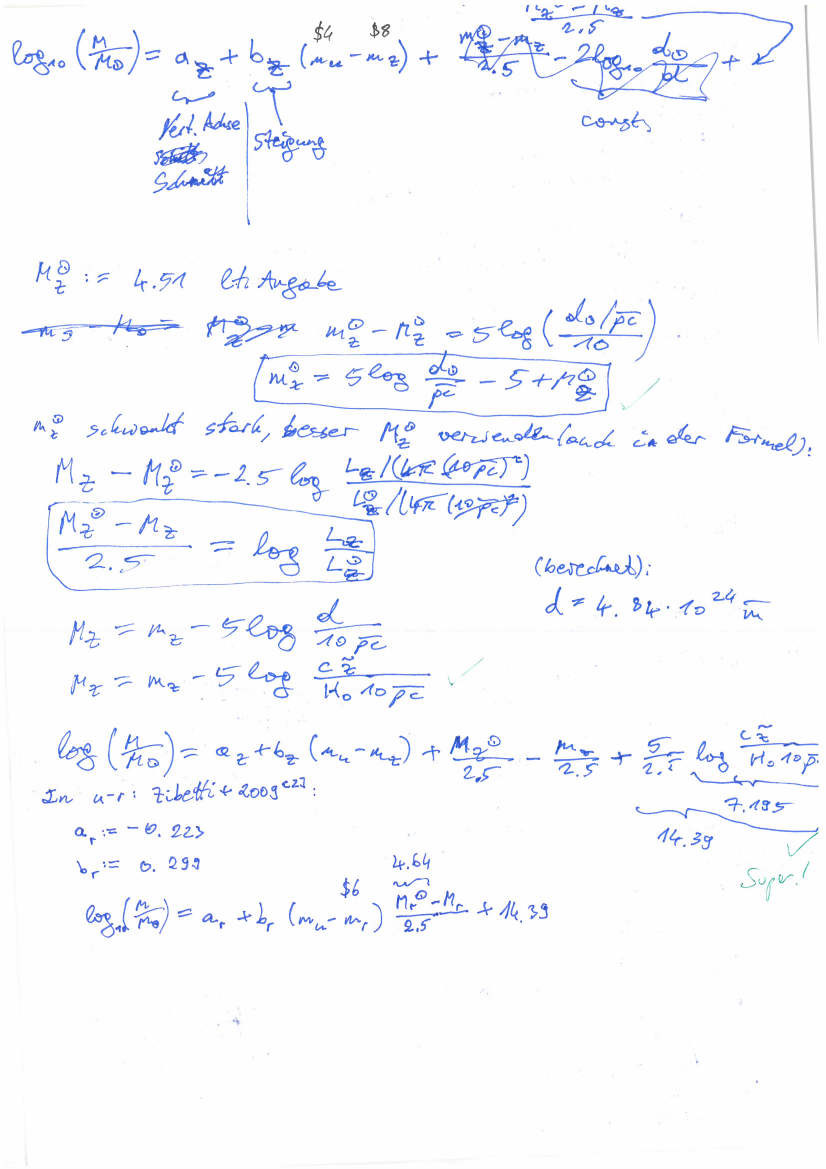 $4 $8
log₁₀ (M/M⊙) = a_z + b_z (m_u − m_z) + (m_z^⊙ − m_z)/2.5 − 2 log₁₀ d⊙/d +
const.
Vert. Achse
Steigung
M_z^⊙ := 4.51 lt. Angabe
m_z^⊙ − M_z^⊙ = 5 log ((d⊙/pc)/10)
m_z^⊙ = 5 log d⊙/pc − 5 + M_z^⊙
m_z^⊙ schwankt stark, besser M_z^⊙ verwenden (auch in der Formel):
M_z − M_z^⊙ = −2.5 log (L_z/(4π (10 pc)²))/(L_z^⊙/(4π (10 pc)²))
(M_z^⊙ − M_z)/2.5 = log L_z/L_z^⊙
(berechnet):
d = 4.84 · 10²⁴ m
M_z = m_z − 5 log d/(10 pc)
M_z = m_z − 5 log (c z̃)/(H₀ 10 pc)
log (M/M⊙) = a_z + b_z (m_u − m_z) + M_z^⊙/2.5 − m_z/2.5 + 5/2.5 log (c z̃)/(H₀ 10 p
7.195
14.39
In u-r: Zibetti+2009^[2]:
a_r := −0.223
b_r := 0.299
Super!
4.64
$6
log₁₀ (M/M⊙) = a_r + b_r (m_u − m_r) (M_r^⊙ − M_r)/2.5 + 14.39